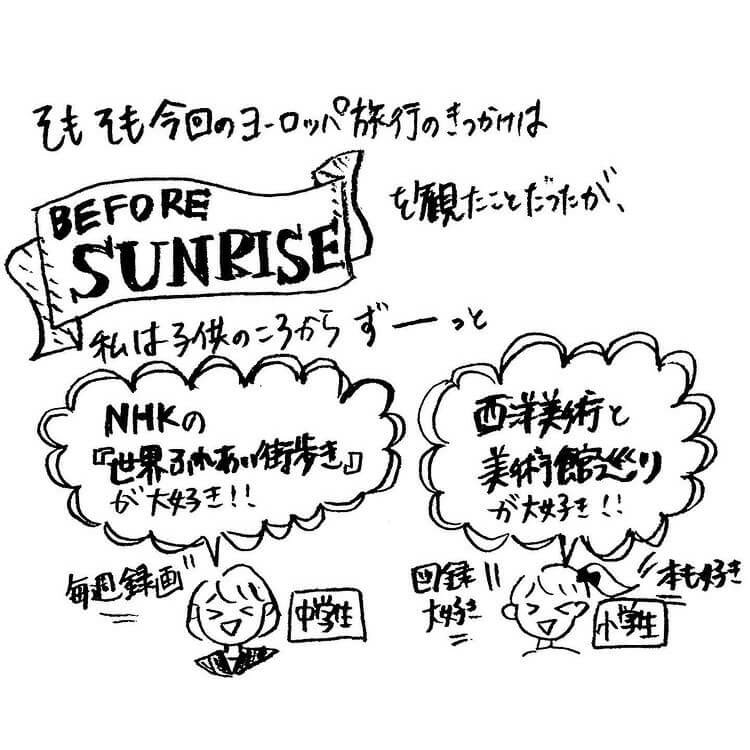 そもそも今回のヨーロッパ旅行のきっかけは
BEFORE
SUNRISE
を観たことだったが、
私は子供のころからずーっと
NHKの
『世界ふれあい街歩き』
が大好き!!
毎週録画
中学生
西洋美術と
美術館巡り
が大好き!!
図録
大好き
本も好き
小学生